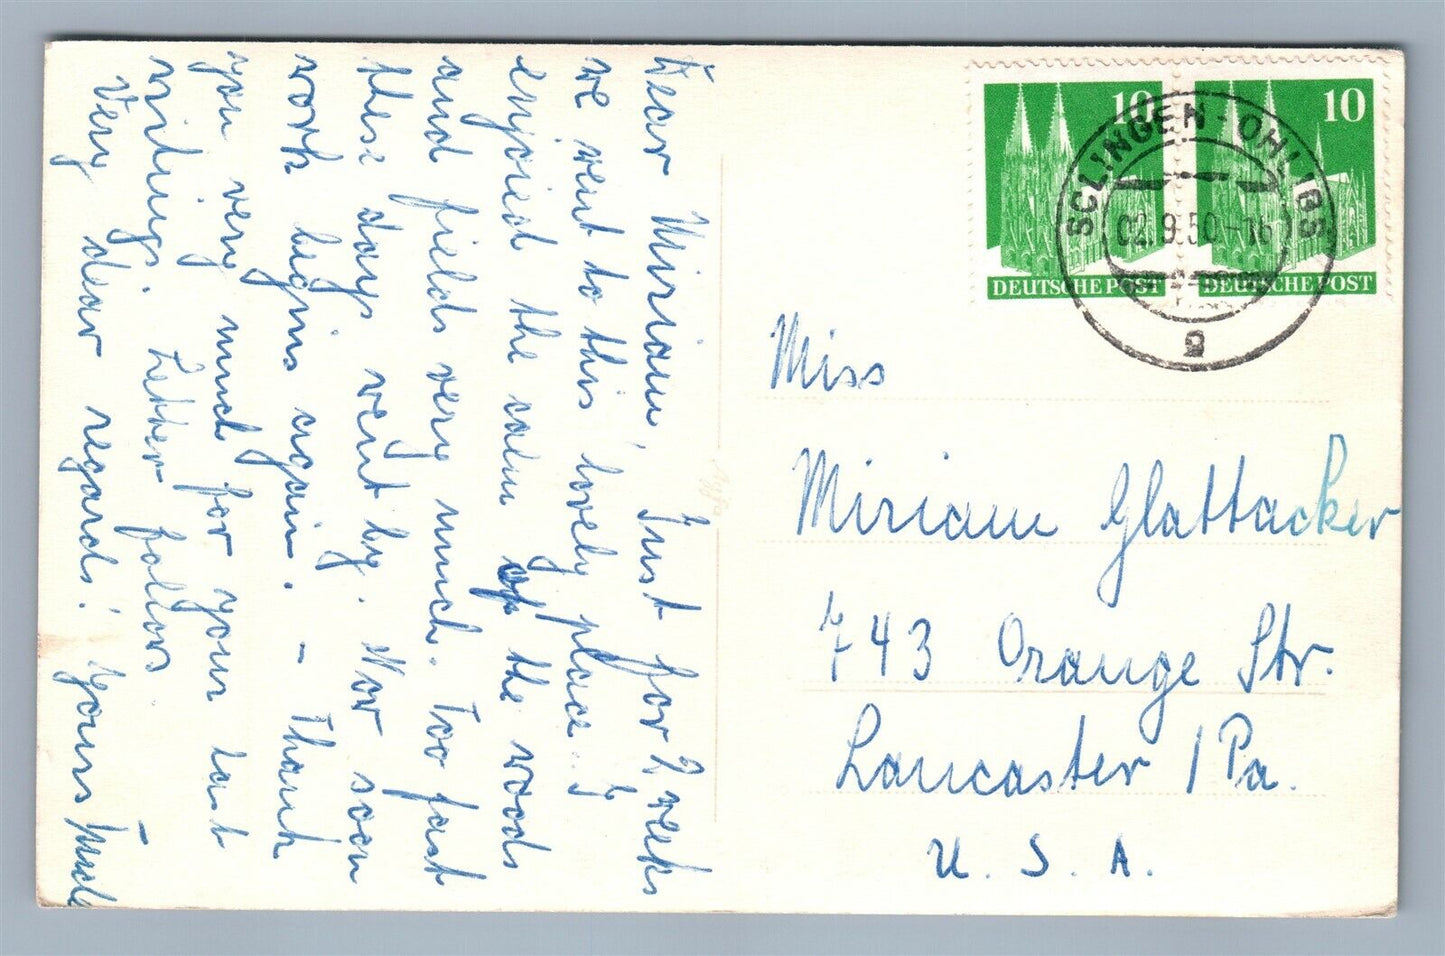 Dear Miriam, Just for 2 weeks
we went to this lovely place. I
enjoied the calm of the woods
and fields very much. Too fast
these days went by. Now soon
work begins again. – Thank
you very much for your last
writings. Letter follows –
Very dear regards! Yours
10
10
DEUTSCHE POST
DEUTSCHE POST
SOLINGEN-OHLIGS
02.9.50-16
g
Miss
Miriam Glattacker
743 Orange Str.
Lancaster / Pa.
U. S. A.